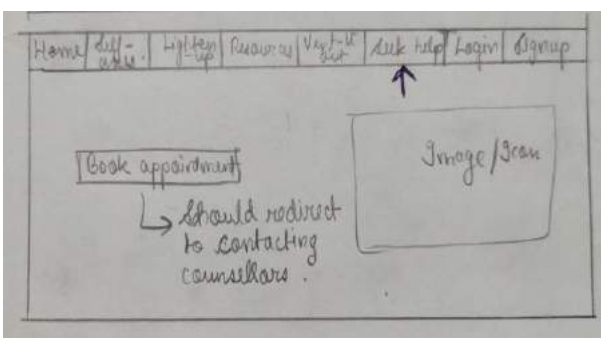 Home Self-asse. Lighten-up Resources Vent-it out Seek help Login Signup
Book appointment
Image/Icon
Should redirect
to contacting
counsellors.